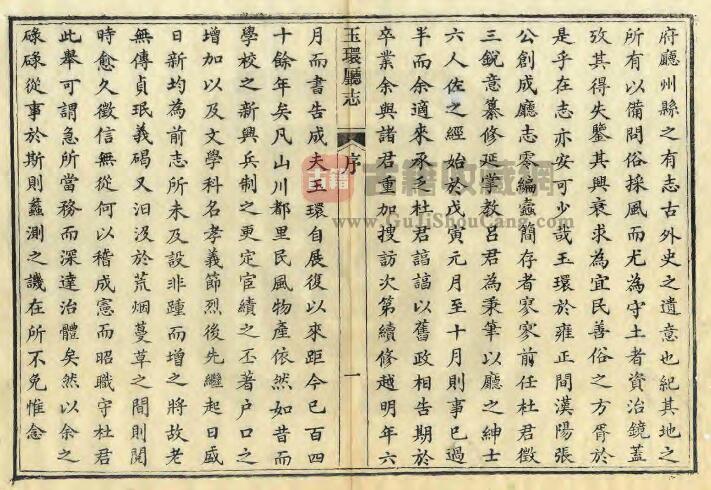 府廳州縣之有志古外史之遺意也紀其地之
所有以備問俗採風而尤為守土者資治鏡蓋
攷其得失鑒其興衰求為宜民善俗之方胥於
是乎在志亦安可少哉玉環於雍正間漢陽張
公創成廳志零編蠹簡存者寥寥前任杜君徵
三銳意纂修延掌教呂君為秉筆以廳之紳士
六人佐之經始於戊寅元月至十月則事已過
半而余適來承杜君諄諄以舊政相告期於
卒業余與諸君重加搜訪次第續修越明年六
玉環廳志
序
一
月而書告成夫玉環自展復以來距今已百四
十餘年矣凡山川都里民風物產依然如昔而
學校之新興兵制之更定宦績之丕著戶口之
增加以及文學科名孝義節烈後先繼起日盛
日新均為前志所未及設非踵而增之將故老
無傳貞珉義碣又汩沒於荒烟蔓草之間則閱
時愈久徵信無從何以稽成憲而昭職守杜君
此舉可謂急所當務而深達治體矣然以余之
碌碌從事於斯則蠡測之譏在所不免惟念
古籍
古籍收藏网
www.GuJiShouCang.com